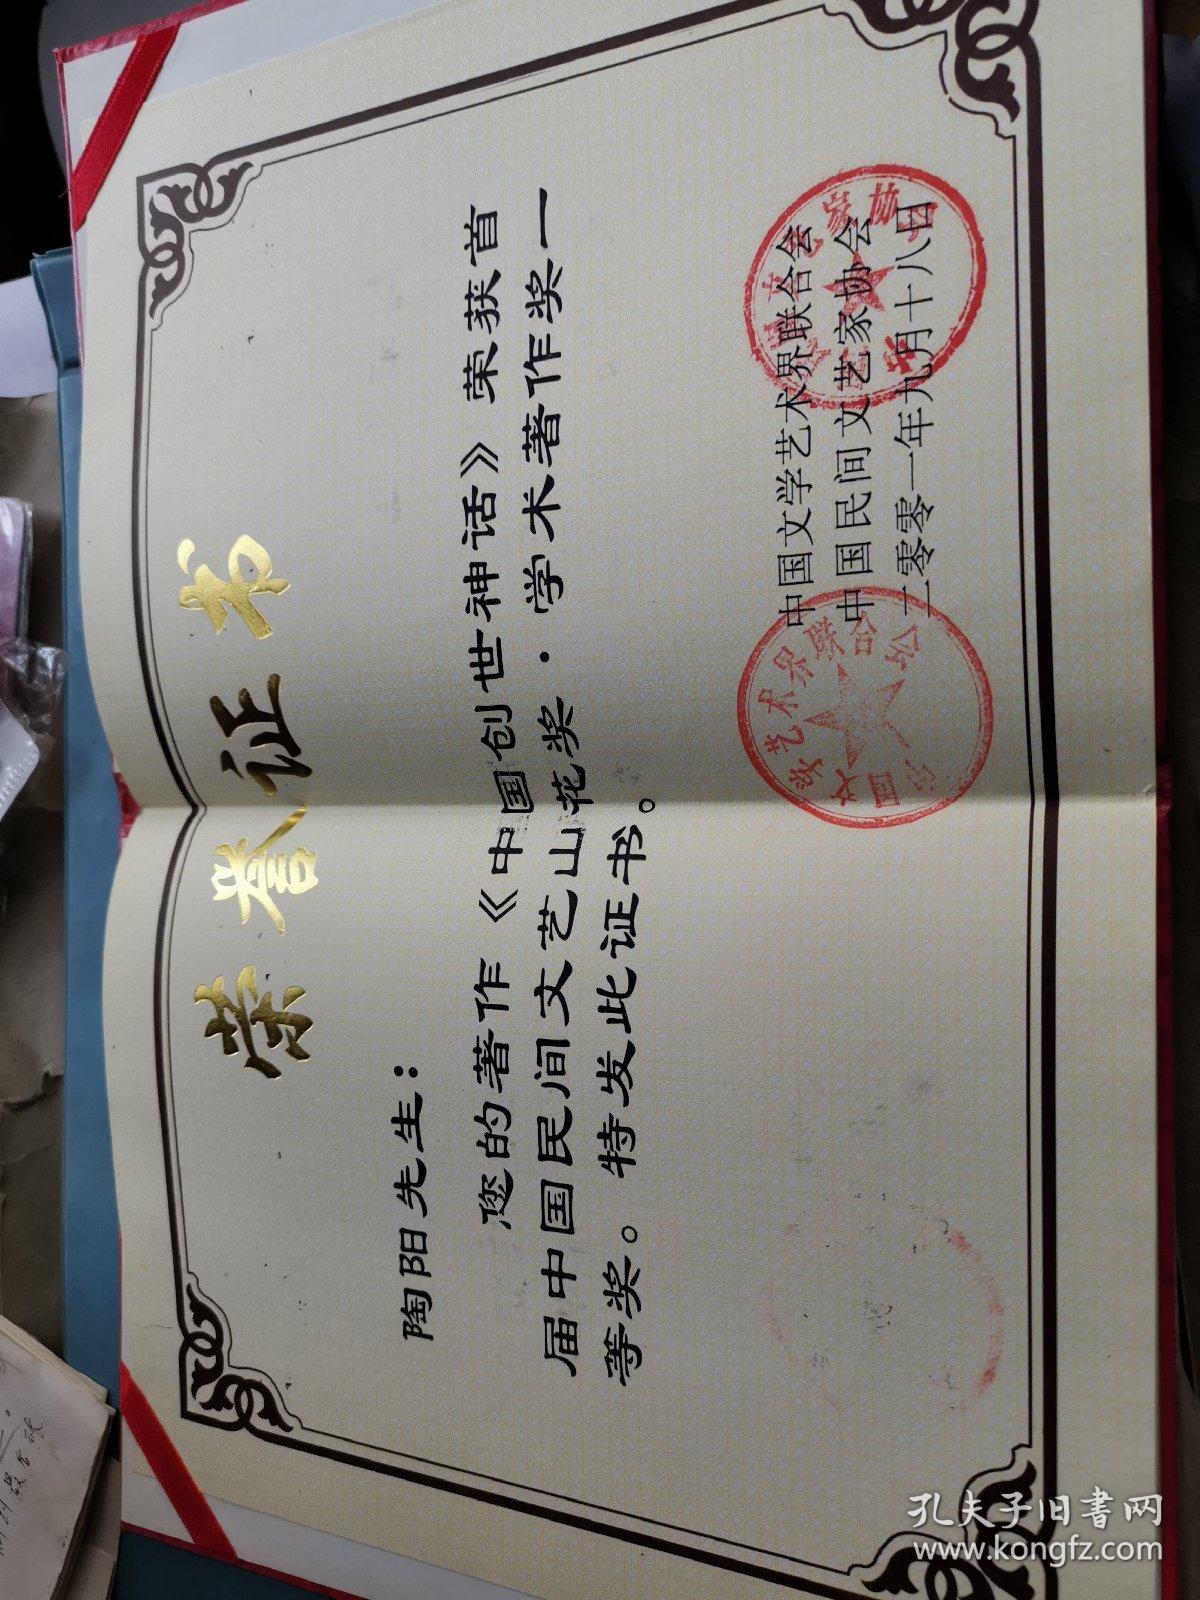 荣誉证书
陶阳先生：
您的著作《中国创世神话》荣获首
届中国民间文艺山花奖·学术著作奖一
等奖。特发此证书。
中国文学艺术界联合会
中国民间文艺家协会
二零零一年九月十八日
孔夫子旧書网
www.kongfz.com